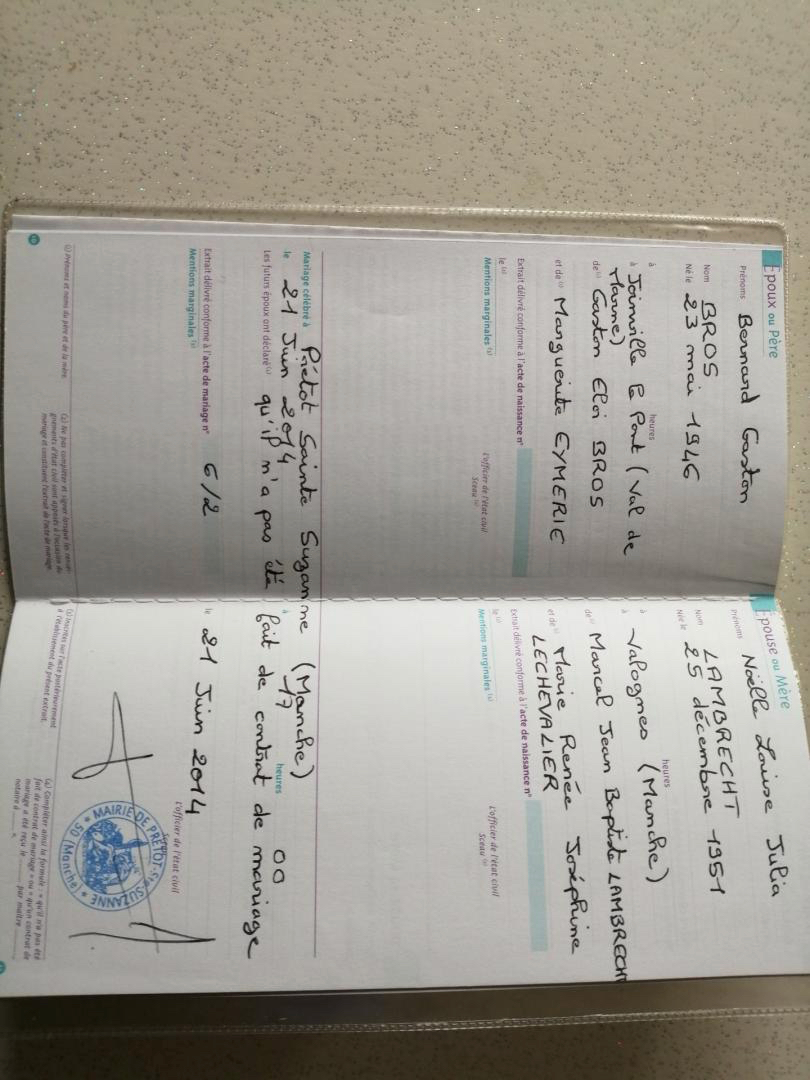 Époux ou Père
Prénoms Bernard Gaston
Nom BROS
Né le 23 mai 1946
à heures
à Joinville le Pont (Val de
Marne)
de (1) Gaston Eloi BROS
et de (1) Marguerite EYMERIE
Extrait délivré conforme à l'acte de naissance n°
le (2)
L'officier de l'état civil
Sceau (2)
Mentions marginales (3)
Épouse ou Mère
Prénoms Noëlle Louise Julia
Nom LAMBRECHT
Née le 25 décembre 1951
à heures
à Valognes (Manche)
de (1) Marcel Jean Baptiste LAMBRECHT
et de (1) Marie Renée Joséphine
LECHEVALIER
Extrait délivré conforme à l'acte de naissance n°
le (2)
L'officier de l'état civil
Sceau (2)
Mentions marginales (3)
Mariage célébré à Prétot Sainte Suzanne (Manche)
le 21 Juin 2014 à 17 heures 00
Les futurs époux ont déclaré (4) qu'il n'a pas été fait de contrat de mariage
Extrait délivré conforme à l'acte de mariage n° 6/2 le 21 Juin 2014
Mentions marginales (3)
L'officier de l'état civil
Sceau
MAIRIE DE PRÉTOT-Ste-SUZANNE
50 (Manche)
(1) Prénoms et noms du père et de la mère.
(2) Ne pas compléter et signer lorsque les rensei-
gnements d'état civil sont apposés à l'occasion du
mariage et constituent l'extrait de l'acte de mariage.
(3) Inscrites sur l'acte postérieurement
à l'établissement du présent extrait.
(4) Compléter ainsi la formule : « qu'il n'a pas été
fait de contrat de mariage » ou « qu'un contrat de
mariage a été reçu le ........ par maître ........
notaire à ........ ».